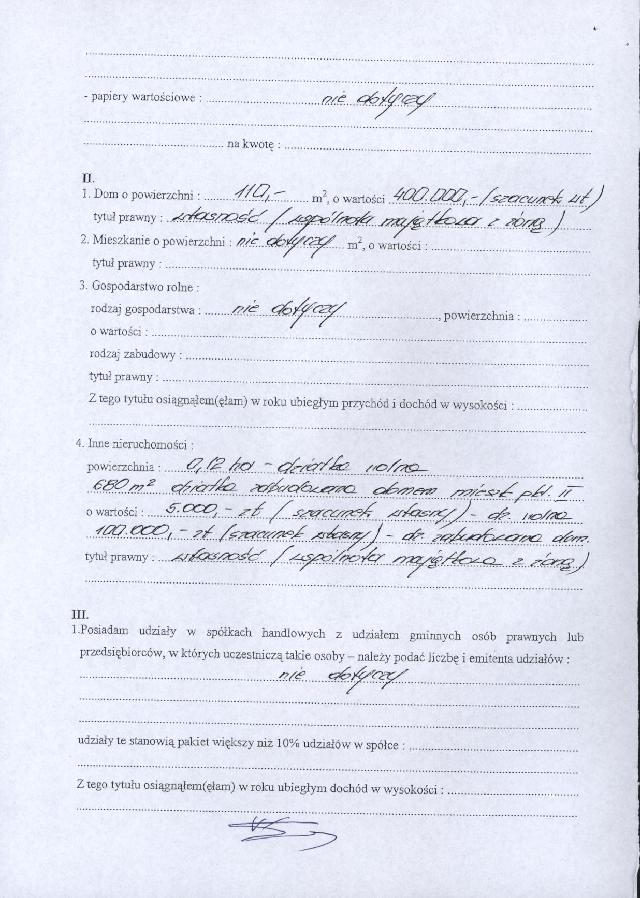 - papiery wartościowe : nie dotyczy
na kwotę :
II.
1. Dom o powierzchni : 110,- m², o wartości 400.000,- (szacunek wł)
tytuł prawny : własność (wspólnota majątkowa z żoną)
2. Mieszkanie o powierzchni : nie dotyczy m², o wartości :
tytuł prawny :
3. Gospodarstwo rolne :
rodzaj gospodarstwa : nie dotyczy , powierzchnia :
o wartości :
rodzaj zabudowy :
tytuł prawny :
Z tego tytułu osiągnąłem(ęłam) w roku ubiegłym przychód i dochód w wysokości :
4. Inne nieruchomości :
powierzchnia : 0,12 ha - działka rolna
680 m² działka zabudowana domem mieszk pkt. II
o wartości : 5.000,- zł (szacunek własny) - dz rolna
100.000,- zł (szacunek własny) - dz. zabudowana dom.
tytuł prawny : własność (wspólnota majątkowa z żoną)
III.
1.Posiadam udziały w spółkach handlowych z udziałem gminnych osób prawnych lub
przedsiębiorców, w których uczestniczą takie osoby – należy podać liczbę i emitenta udziałów :
nie dotyczy
udziały te stanowią pakiet większy niż 10% udziałów w spółce :
Z tego tytułu osiągnąłem(ęłam) w roku ubiegłym dochód w wysokości :